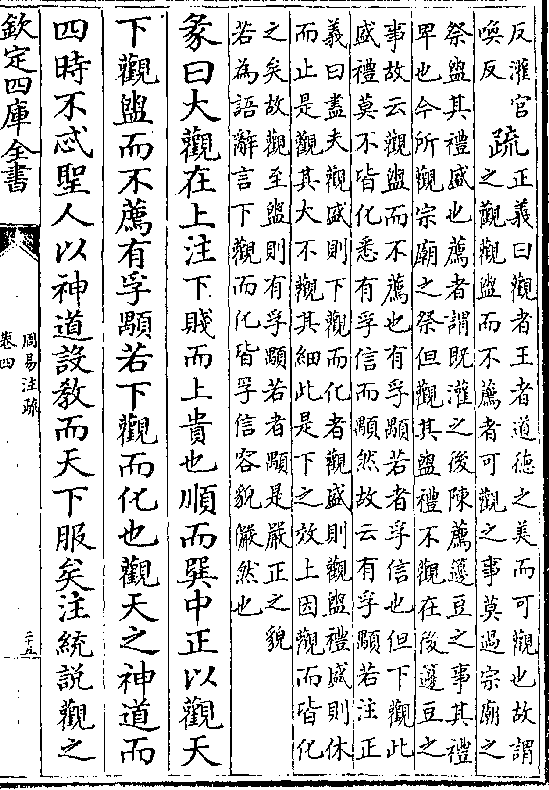 反灌官
喚反
疏
正義曰觀者王者道德之美而可觀也故謂
之觀觀盥而不薦者可觀之事莫過宗廟之
祭盥其禮盛也薦者謂既灌之後陳薦籩豆之事其禮
卑也今所觀宗廟之祭但觀其盥禮不觀在後籩豆之
事故云觀盥而不薦也有孚顒若者孚信也但下觀此
盛禮莫不皆化悉有孚信而顒然故云有孚顒若注正
義曰盡夫觀盛則下觀而化者觀盛則觀盥禮盛則休
而止是觀其大不觀其細此是下之效上因觀而皆化
之矣故觀至盥則有孚顒若者顒是嚴正之貌
若為語辭言下觀而化皆孚信容貌儼然也
彖曰大觀在上注下賤而上貴也順而巽中正以觀天
下觀盥而不薦有孚顒若下觀而化也觀天之神道而
四時不忒聖人以神道設教而天下服矣注統説觀之
欽定四庫全書
周易注疏
卷四
二十五